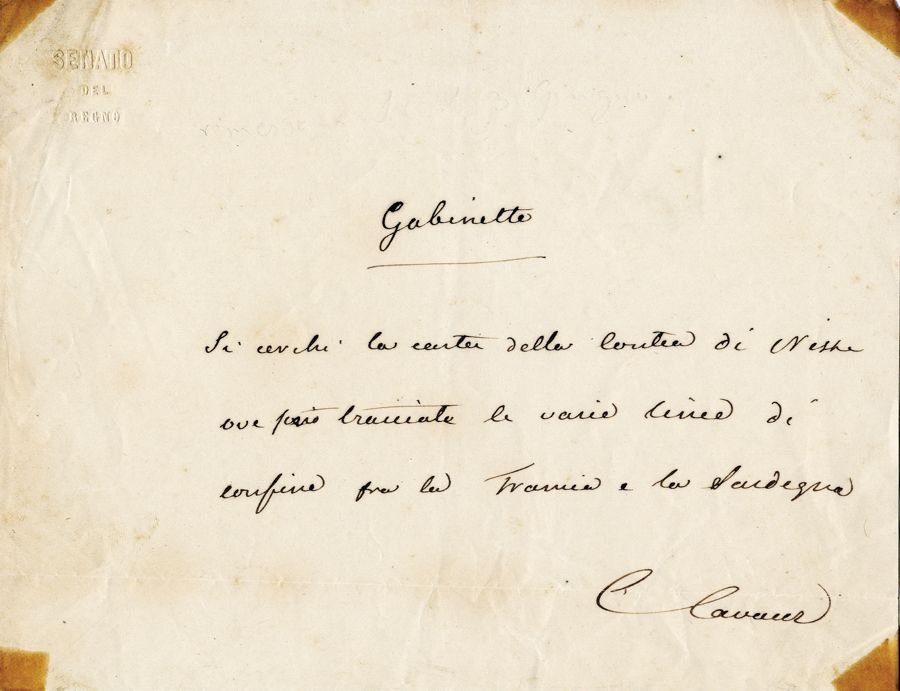 SENATO
DEL
REGNO
Gabinetto
Si cerchi la carta della Contea di Nizza
ove sono tracciate le varie linee di
confine fra la Francia e la Sardegna
C Cavour